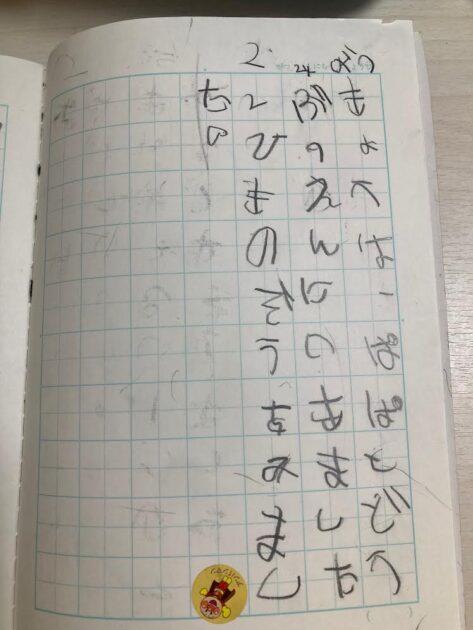 きょうは、ぱぱとどう
ぶつえんにいきました
2ひきのぞうをみまし
た。